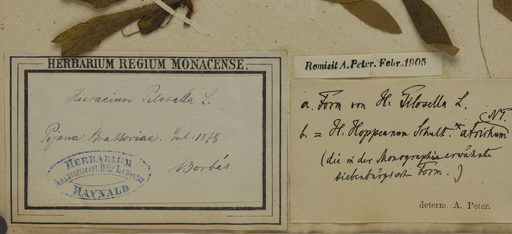 HERBARIUM REGIUM MONACENSE.
Hieracium Pilosella L.
Pojana Brassoviae. Jul. 1878
Borbás
HERBARIUM
HAYNALD
Remisit A. Peter. Febr. 1905
a. Form von H. Pilosella L.
N.P.
b. = H. Hoppeanum Schult. * atrichum
(die in der Monographie erwähnte
siebenbürgische Form.)
determ. A. Peter.